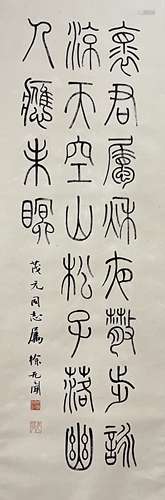 褱君屬秌夜散步詠
涼天空山松子落幽
人應未瞑
茂元同志屬 徐无聞